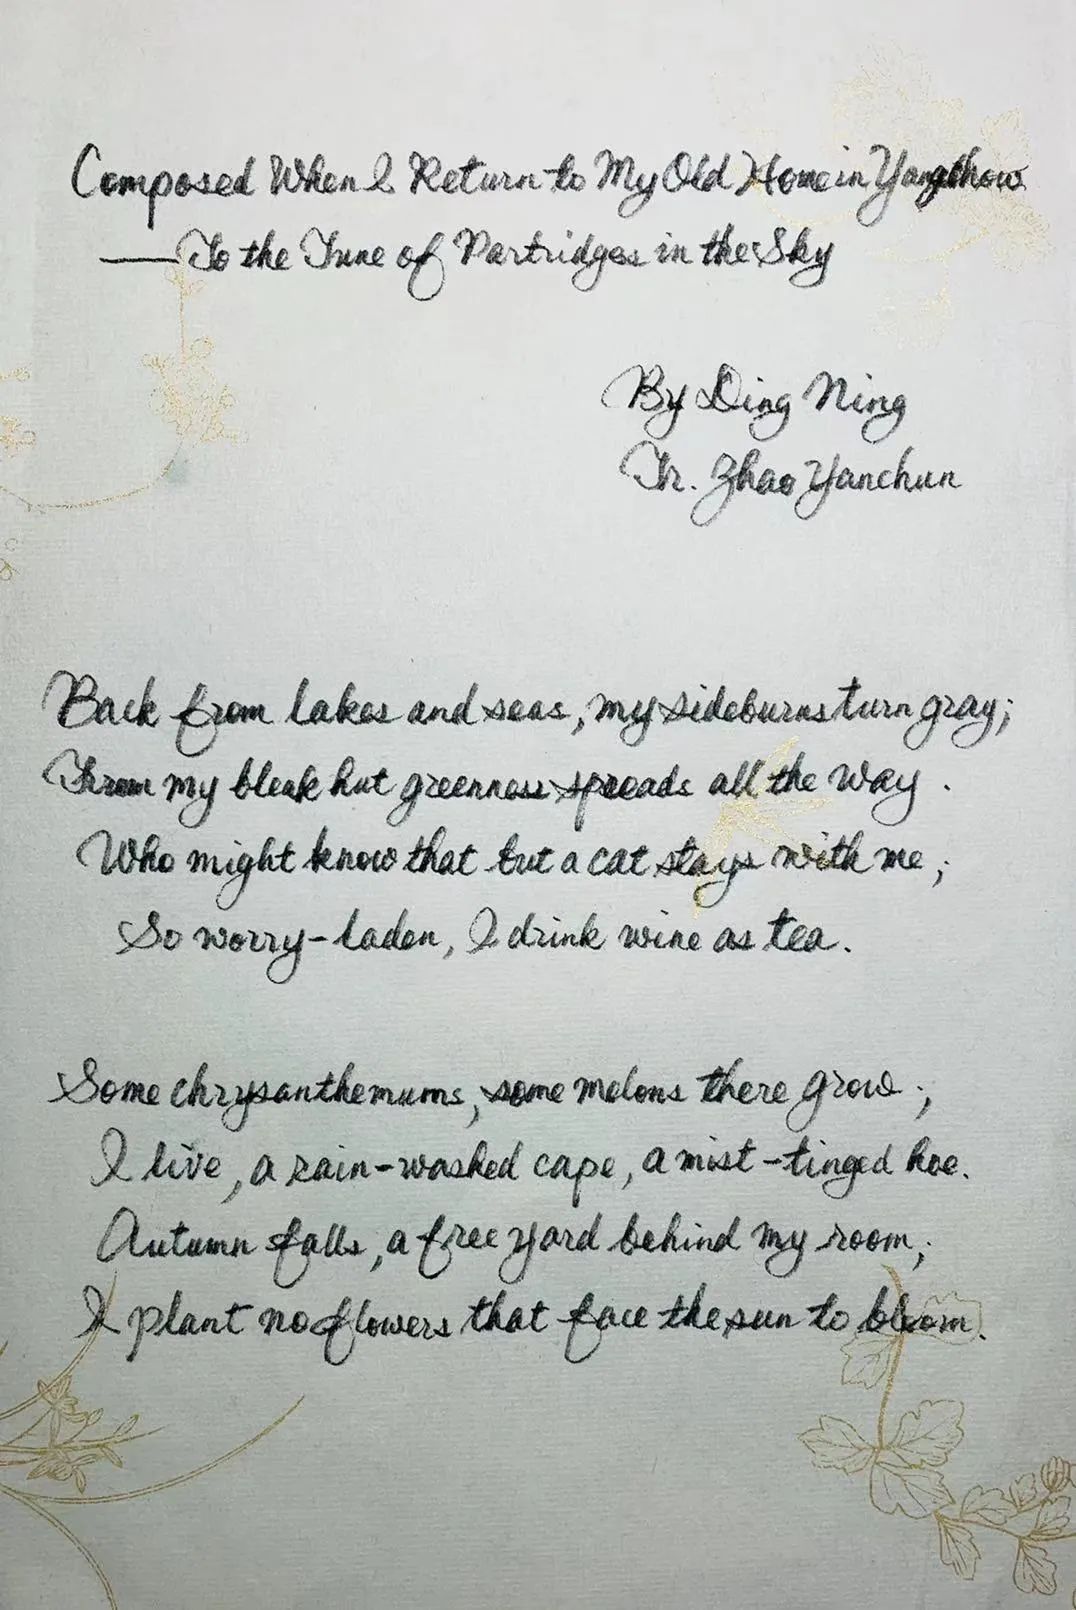 Composed When I Return to My Old Home in Yangchow
——To the Tune of Partridges in the Sky
By Ding Ning
Tr. Zhao Yanchun
Back from lakes and seas, my sideburns turn gray;
From my bleak hut greenness spreads all the way.
Who might know that but a cat stays with me;
So worry-laden, I drink wine as tea.
Some chrysanthemums, some melons there grow;
I live, a rain-washed cape, a mist-tinged hoe.
Autumn falls, a free yard behind my room;
I plant no flowers that face the sun to bloom.